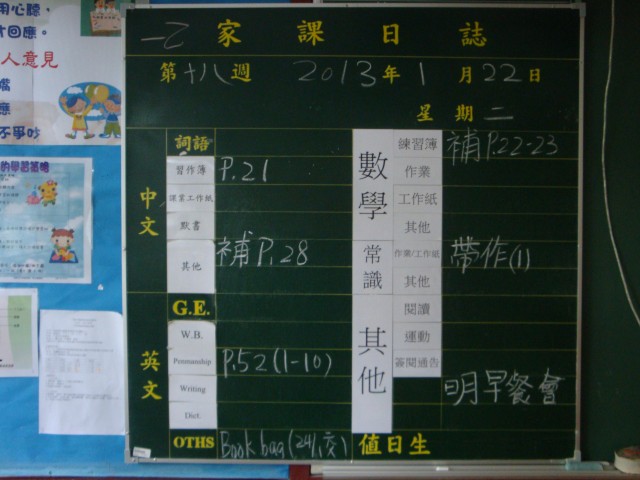 用心聽，
才回應。
人意見
嘴
應
不爭吵
一乙 家課日誌
第十八週 2013年1月22日
星期二
中文
詞語
習作簿 P.21
課堂工作紙
默書
其他 補P.28
英文
G.E.
W.B.
Penmanship P.52 (1-10)
Writing
Dict.
OTHS Book bag (24/1交)
數學
練習簿 補P.22-23
作業
工作紙
其他
常識
作業/工作紙 帶作(1)
其他
其他
閱讀
運動
簽閱通告
明早餐會
值日生